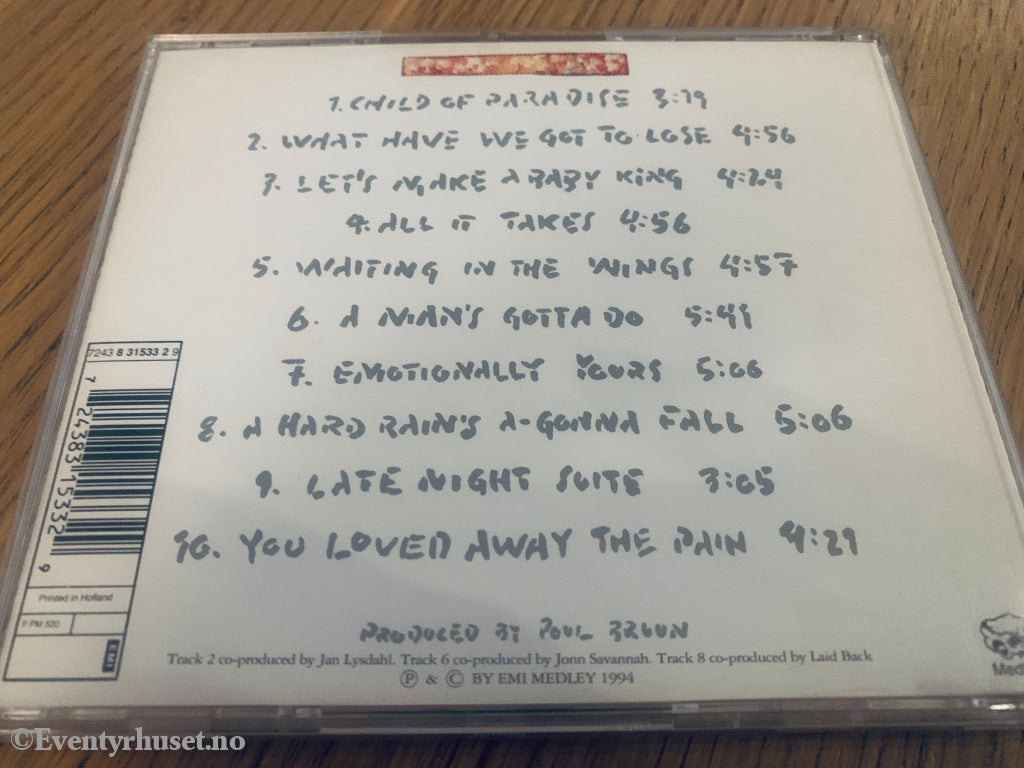 1. CHILD OF PARADISE 3:19
2. WHAT HAVE WE GOT TO LOSE 4:56
3. LET'S MAKE A BABY KING 4:24
4. ALL IT TAKES 4:56
5. WAITING IN THE WINGS 4:57
6. A MAN'S GOTTA DO 5:41
7. EMOTIONALLY YOURS 5:06
8. A HARD RAIN'S A-GONNA FALL 5:06
9. LATE NIGHT SUITE 3:05
10. YOU LOVED AWAY THE PAIN 4:29
7243 8 31533 2 9
7 24383 15332 9
Printed in Holland
F:PM 520
EMI
PRODUCED BY POUL BRUUN
Track 2 co-produced by Jan Lysdahl. Track 6 co-produced by Jonn Savannah. Track 8 co-produced by Laid Back
Ⓟ & © BY EMI MEDLEY 1994
©Eventyrhuset.no